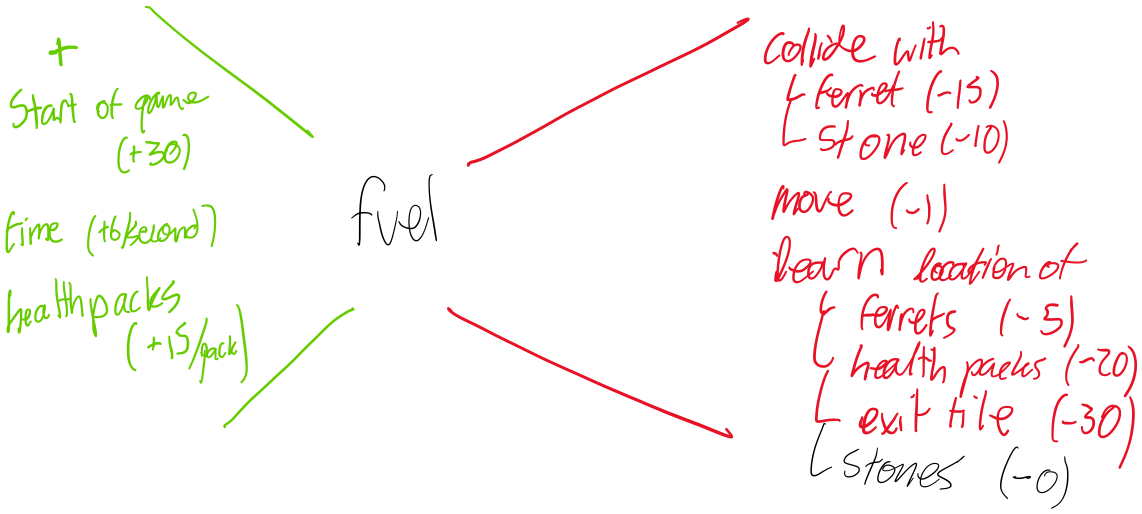 +
Start of game
(+30)
time (+6/second)
healthpacks
(+15/pack)
fuel
collide with
ferret (-15)
stone (-10)
move (-1)
learn location of
ferrets (-5)
health packs (-20)
exit tile (-30)
stones (-0)